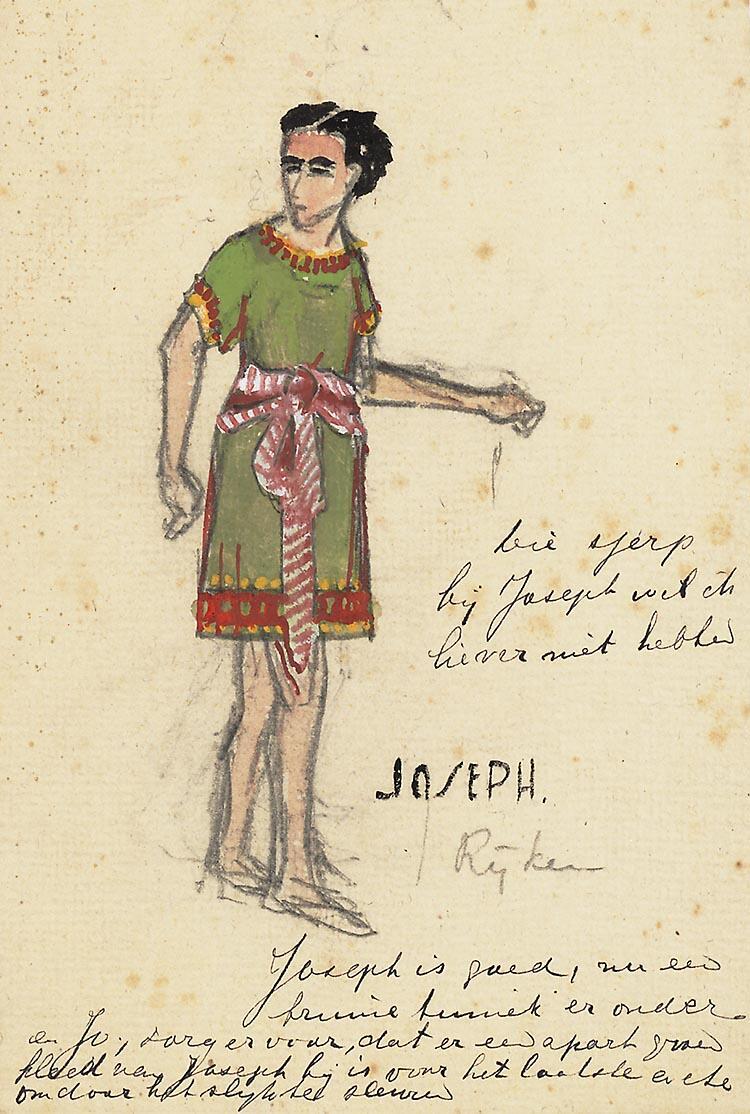 die sjerp
bij Joseph wil ik
liever niet hebben
JOSEPH.
Rijken
Joseph is goed, nu een
bruine tuniek er onder
en Jo, zorg er voor, dat er een apart groen
kleed van Joseph bij is voor het laatste acte
om door het slijk te sleuren